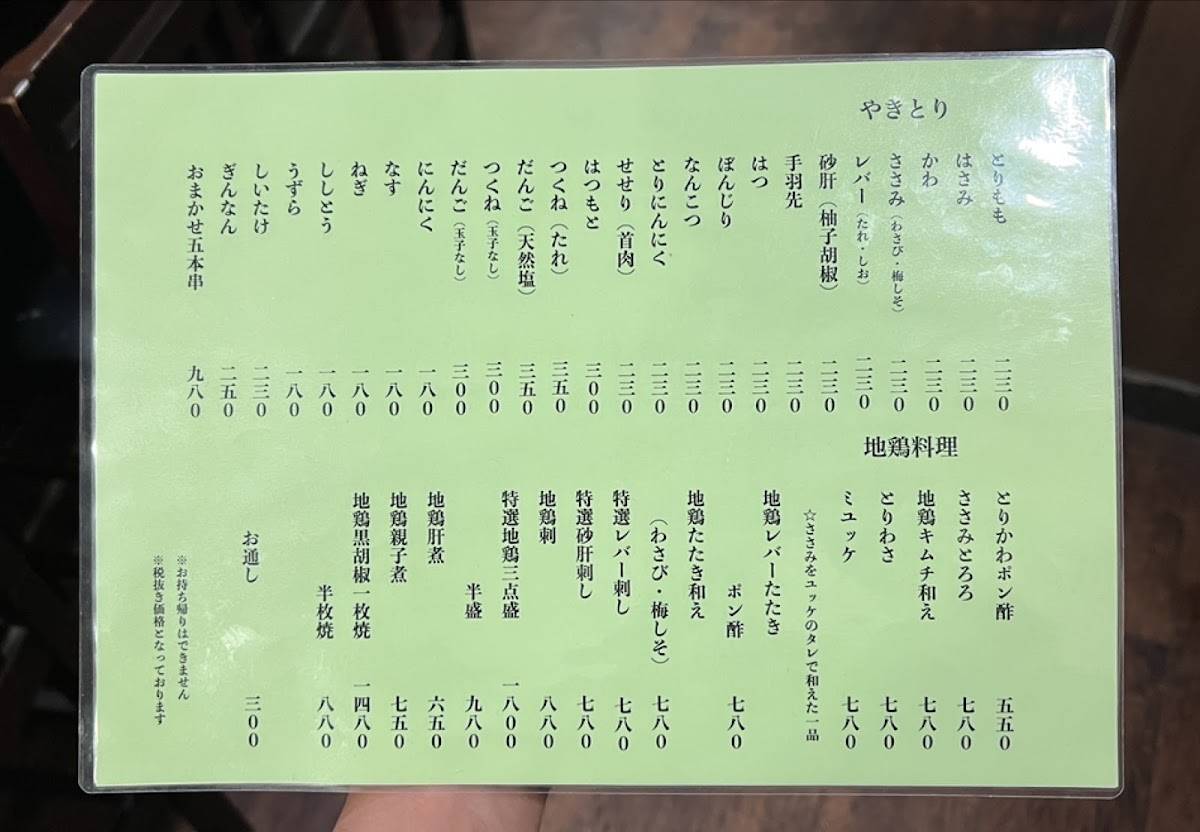 やきとり
とりもも 二三〇
はさみ 二三〇
かわ 二三〇
ささみ（わさび・梅しそ） 二三〇
レバー（たれ・しお） 二三〇
砂肝（柚子胡椒） 二三〇
手羽先 二三〇
はつ 二三〇
ぼんじり 二三〇
なんこつ 二三〇
とりにんにく 二三〇
せせり（首肉） 二三〇
はつもと 三〇〇
つくね（たれ） 三五〇
だんご（天然塩） 三五〇
つくね（玉子なし） 三〇〇
だんご（玉子なし） 三〇〇
にんにく 一八〇
なす 一八〇
ねぎ 一八〇
ししとう 一八〇
うずら 一八〇
しいたけ 二三〇
ぎんなん 二五〇
おまかせ五本串 九八〇
地鶏料理
とりかわポン酢 五五〇
ささみとろろ 七八〇
地鶏キムチ和え 七八〇
とりわさ 七八〇
ミユッケ 七八〇
☆ささみをユッケのタレで和えた一品
地鶏レバーたたき
ポン酢 七八〇
地鶏たたき和え
（わさび・梅しそ） 七八〇
特選レバー刺し 七八〇
特選砂肝刺し 七八〇
地鶏刺 八八〇
特選地鶏三点盛 一八〇〇
半盛 九八〇
地鶏肝煮 六五〇
地鶏親子煮 七五〇
地鶏黒胡椒一枚焼 一四八〇
半枚焼 八八〇
お通し 三〇〇
※お持ち帰りはできません
※税抜き価格となっております